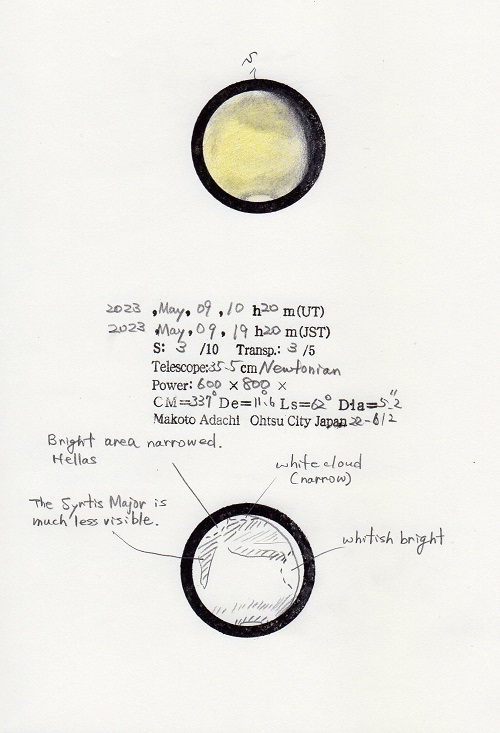 S
2023 ,May, 09 , 10 h20 m(UT)
2023 ,May, 09, 19 h20 m(JST)
S: 3 /10 Transp.: 3 /5
Telescope:35.5 cm Newtonian
Power: 600 × 800 ×
CM=337° De=11.6° Ls=62° Dia=5.2"
Makoto Adachi Ohtsu City Japan 22-612
Bright area narrowed.
Hellas
white cloud
(narrow)
The Syrtis Major is
much less visible.
whitish bright